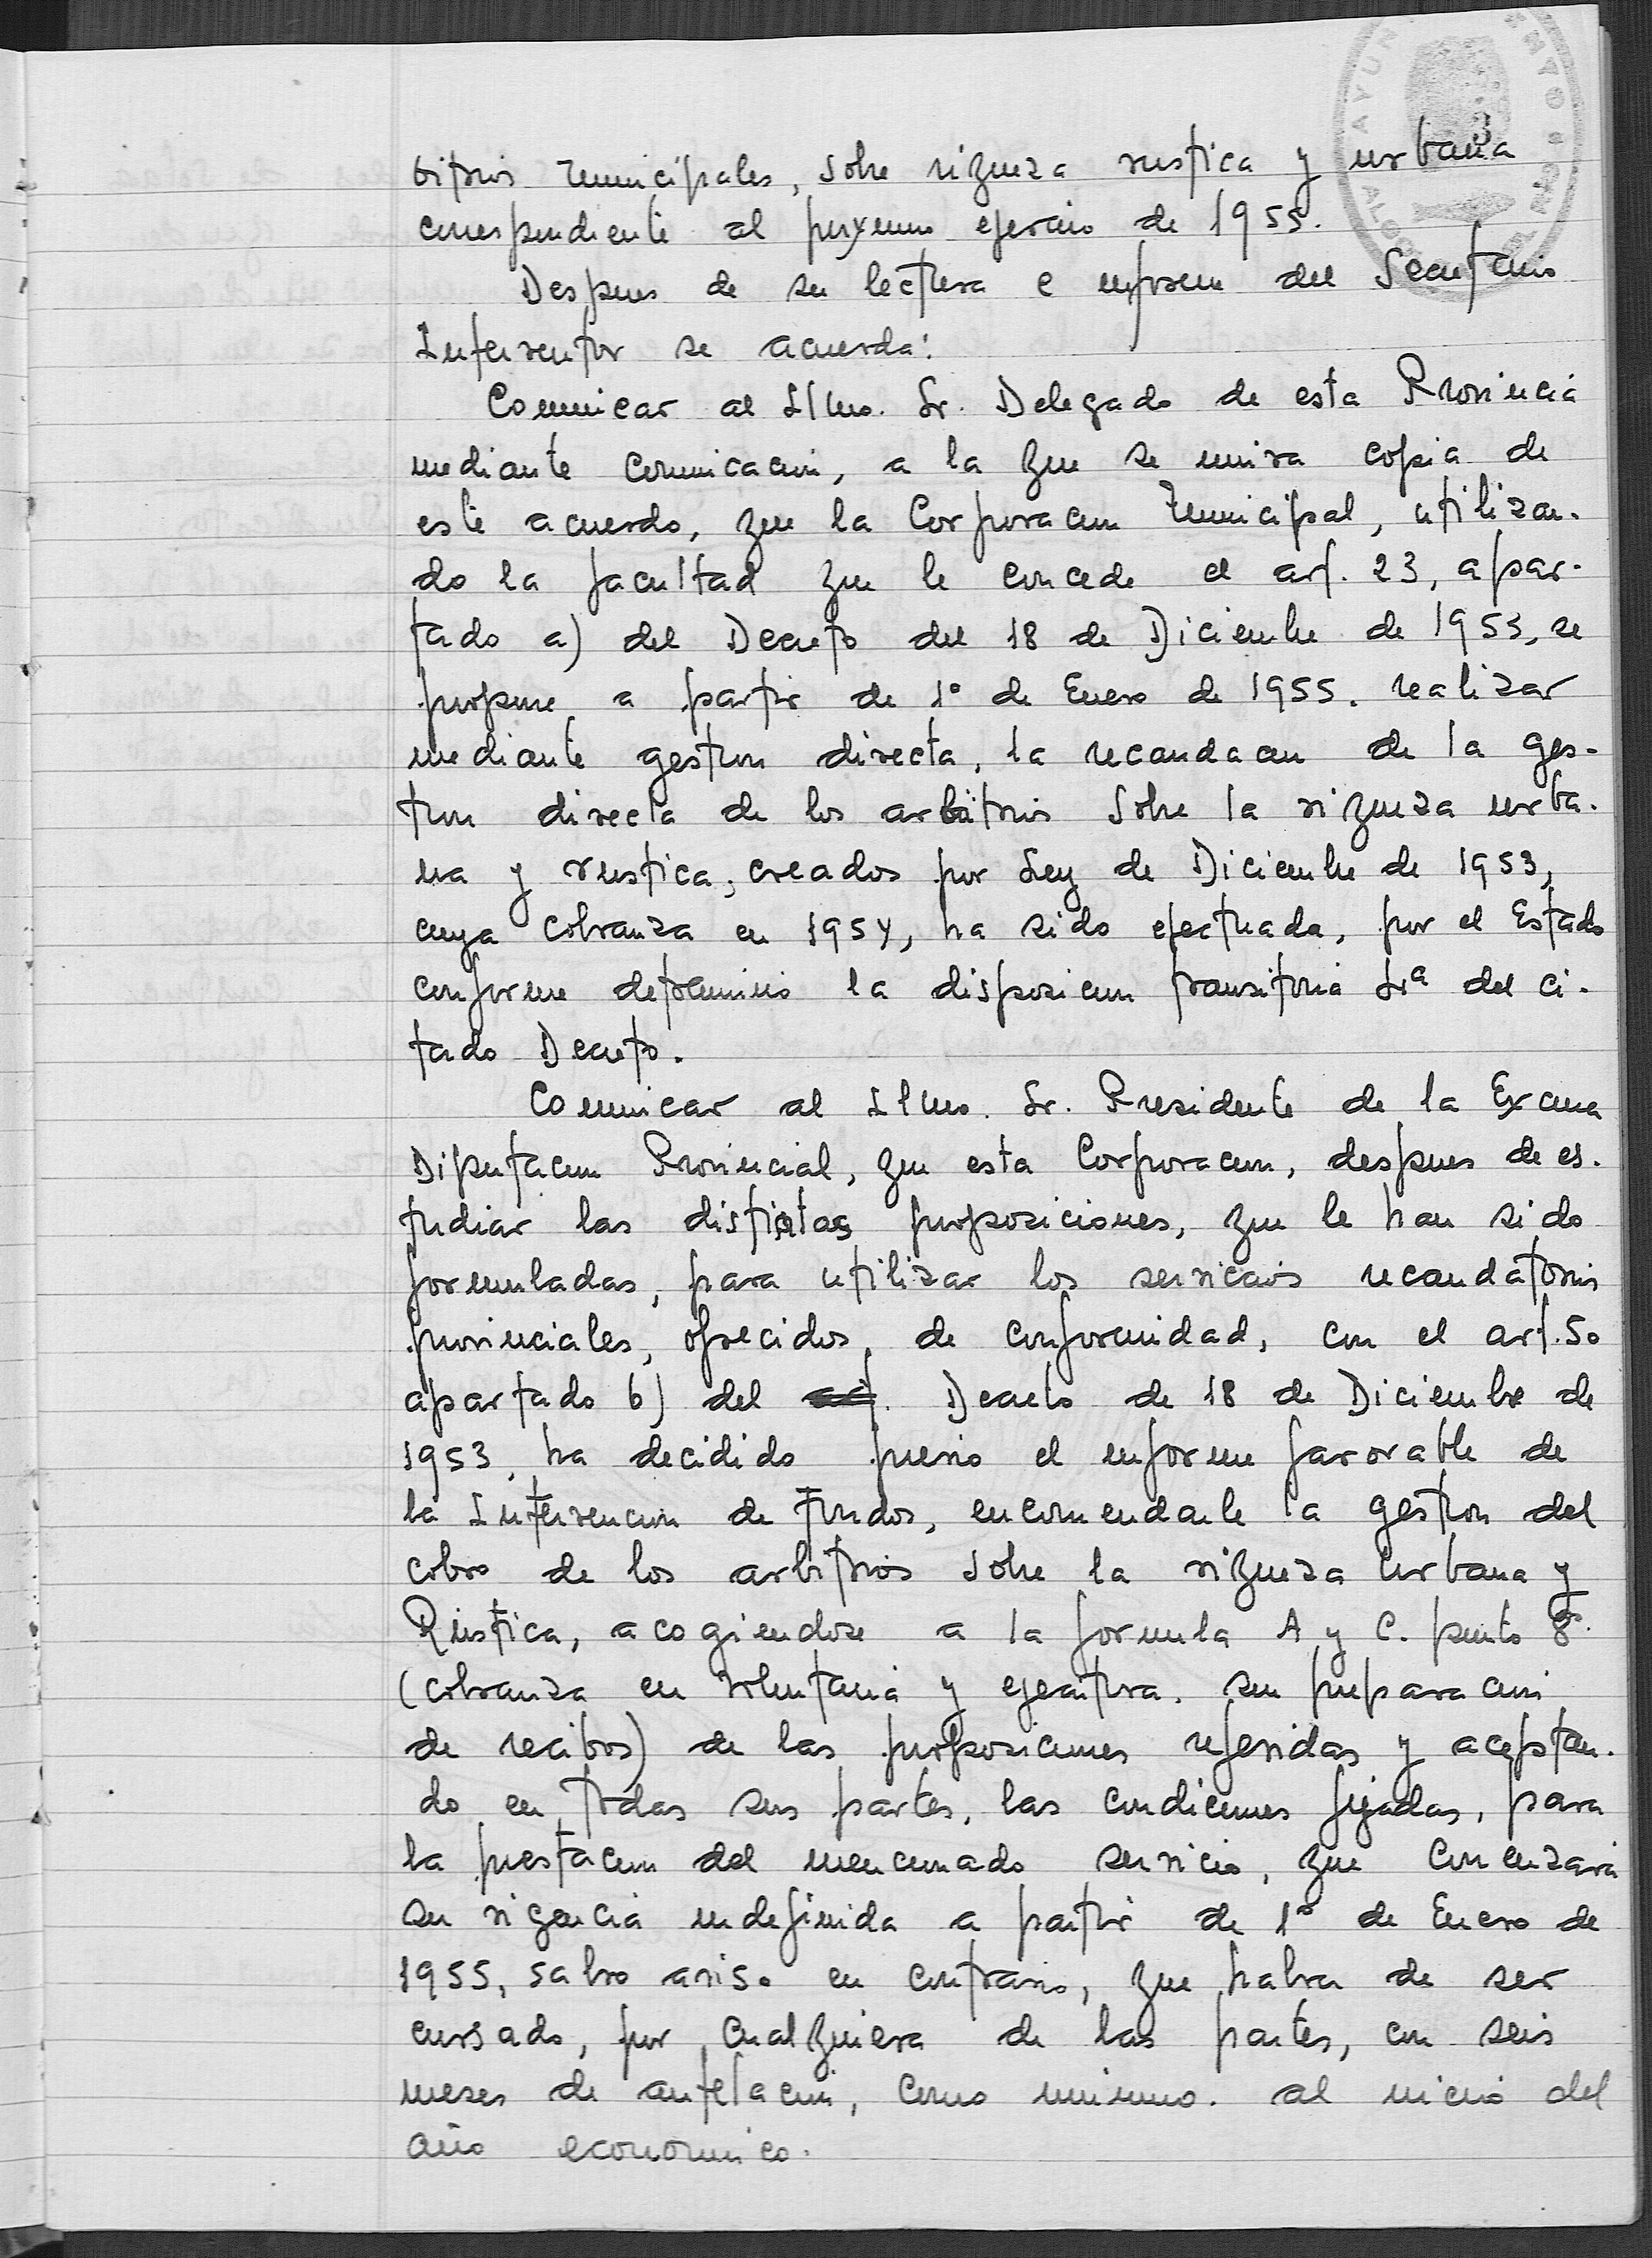 bitrios municipales, sobre riqueza rustica y urbana
correspondiente al proximo ejercicio de 1955.
Despues de su lectura e informe del Secretario
Interventor se acuerda:
Comunicar al Ilmo. Sr. Delegado de esta Provincia
mediante comunicacion, a la que se unira copia de
este acuerdo, que la Corporacion Municipal, utilizan-
do la facultad que le concede el art. 23, apar-
tado a) del Decreto del 18 de Diciembre de 1953, se
propone a partir de 1º de Enero de 1955. realizar
mediante gestion directa, la recaudacion de la ges-
tion directa de los arbitrios sobre la riqueza urba-
na y rustica, creados por Ley de Diciembre de 1953,
cuya cobranza en 1954, ha sido efectuada, por el Estado
conforme determino la disposicion transitoria del ci-
tado Decreto.
Comunicar al Ilmo. Sr. Presidente de la Excma
Diputacion Provincial, que esta Corporacion, despues de es-
tudiar las distintas proposiciones, que le han sido
formuladas, para utilizar los servicios recaudatorios
provinciales, ofrecidos, de conformidad, con el art. 50
apartado b) del Decreto de 18 de Diciembre de
1953, ha decidido previo el informe favorable de
la Intervencion de Fondos, encomendarle la gestion del
cobro de los arbitrios sobre la riqueza Urbana y
Rustica, acogiendose a la formula A y C. punto 8º
(cobranza en voluntaria y ejecutiva. sin preparacion
de recibos) de las proposiciones referidas y aceptan-
do en todas sus partes, las condiciones fijadas, para
la prestacion del mencionado servicio, que comenzará
su vigencia indefinida a partir de 1º de Enero de
1955, salvo aviso en contrario, que habra de ser
cursado, por cualquiera de las partes, con seis
meses de antelacion, como minimo. al inicio del
año economico.